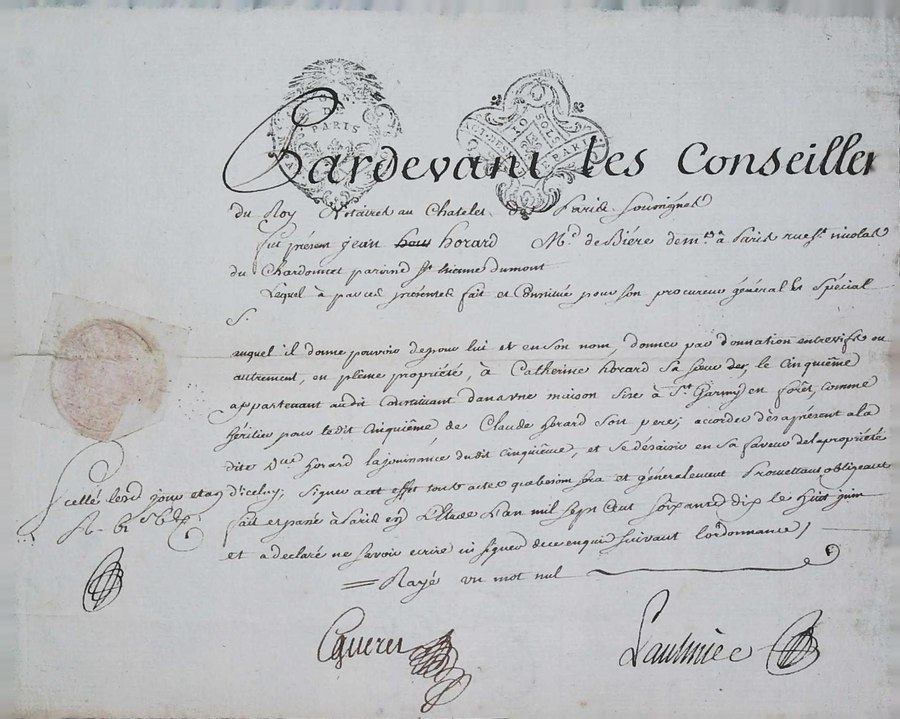 DE
PARIS
Pardevant les Conseillers
du Roy Notaires au Chatelet de Paris Soussignés
fut présent jean horard Md. de Bière demt. à Paris rue St. nicolas
du Chardonnet paroisse St. Etienne dumont
Lequel à par ces présentes fait et Constitué pour son procureur général et Spécial
S.
auquel il donne pouvoir de pour lui et en son nom, donner par donnation entrevifs ou
autrement, en pleine propriété, à Catherine horard Sa soeur, le Cinquième
appartenant audit Constituant dans une maison Sise à St. Garmy en forêt, comme
héritier pour ledit Cinquième de Claude horard Son pere, accorder dès aprésent a la
dite horard la jouissance dudit Cinquième, et se désaisir en Sa faveur de la propriété
d'icelui, Signer a cet effet tout acte qu'abesoin sera et généralement Promettant obligeant
fait et passé à Paris en L'Etude L'an mil Sept Cent Soixante dix le huit juin
et a declaré ne Savoir ecrire ni signer de ce enquis Suivant l'ordonnance /
Rayé un mot nul
Scellé lesd. jour et an